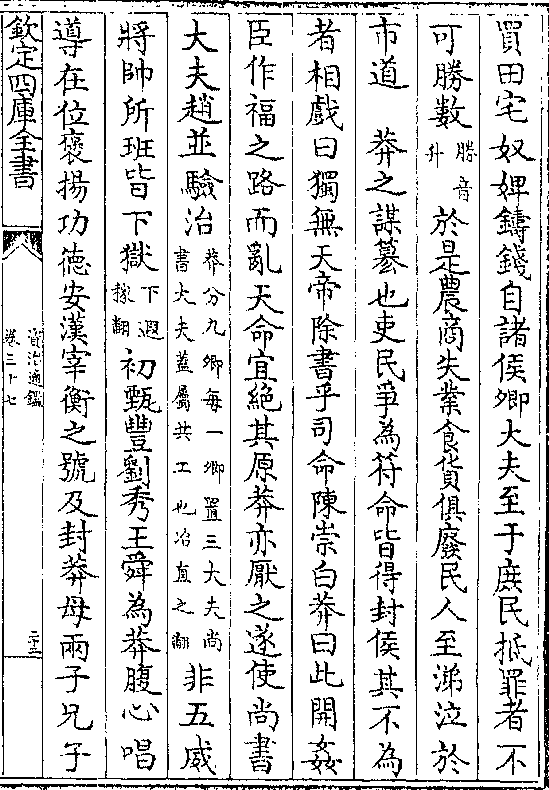 買田宅奴婢鑄錢自諸侯卿大夫至于庶民抵罪者不
可勝數勝音升於是農商失業食貨俱廢民人至涕泣於
市道　莽之謀簒也吏民爭為符命皆得封侯其不為
者相戲曰獨無天帝除書乎司命陳崇白莽曰此開姦
臣作福之路而亂天命宜絶其原莽亦厭之遂使尚書
大夫趙並驗治莽分九卿每一卿置三大夫尚書大夫蓋屬共工也治直之翻非五威
將帥所班皆下獄下遐稼翻初甄豐劉秀王舜為莽腹心唱
導在位襃揚功德安漢宰衡之號及封莽母兩子兄子
欽定四庫全書
資治通鑑
卷三十七
二十三